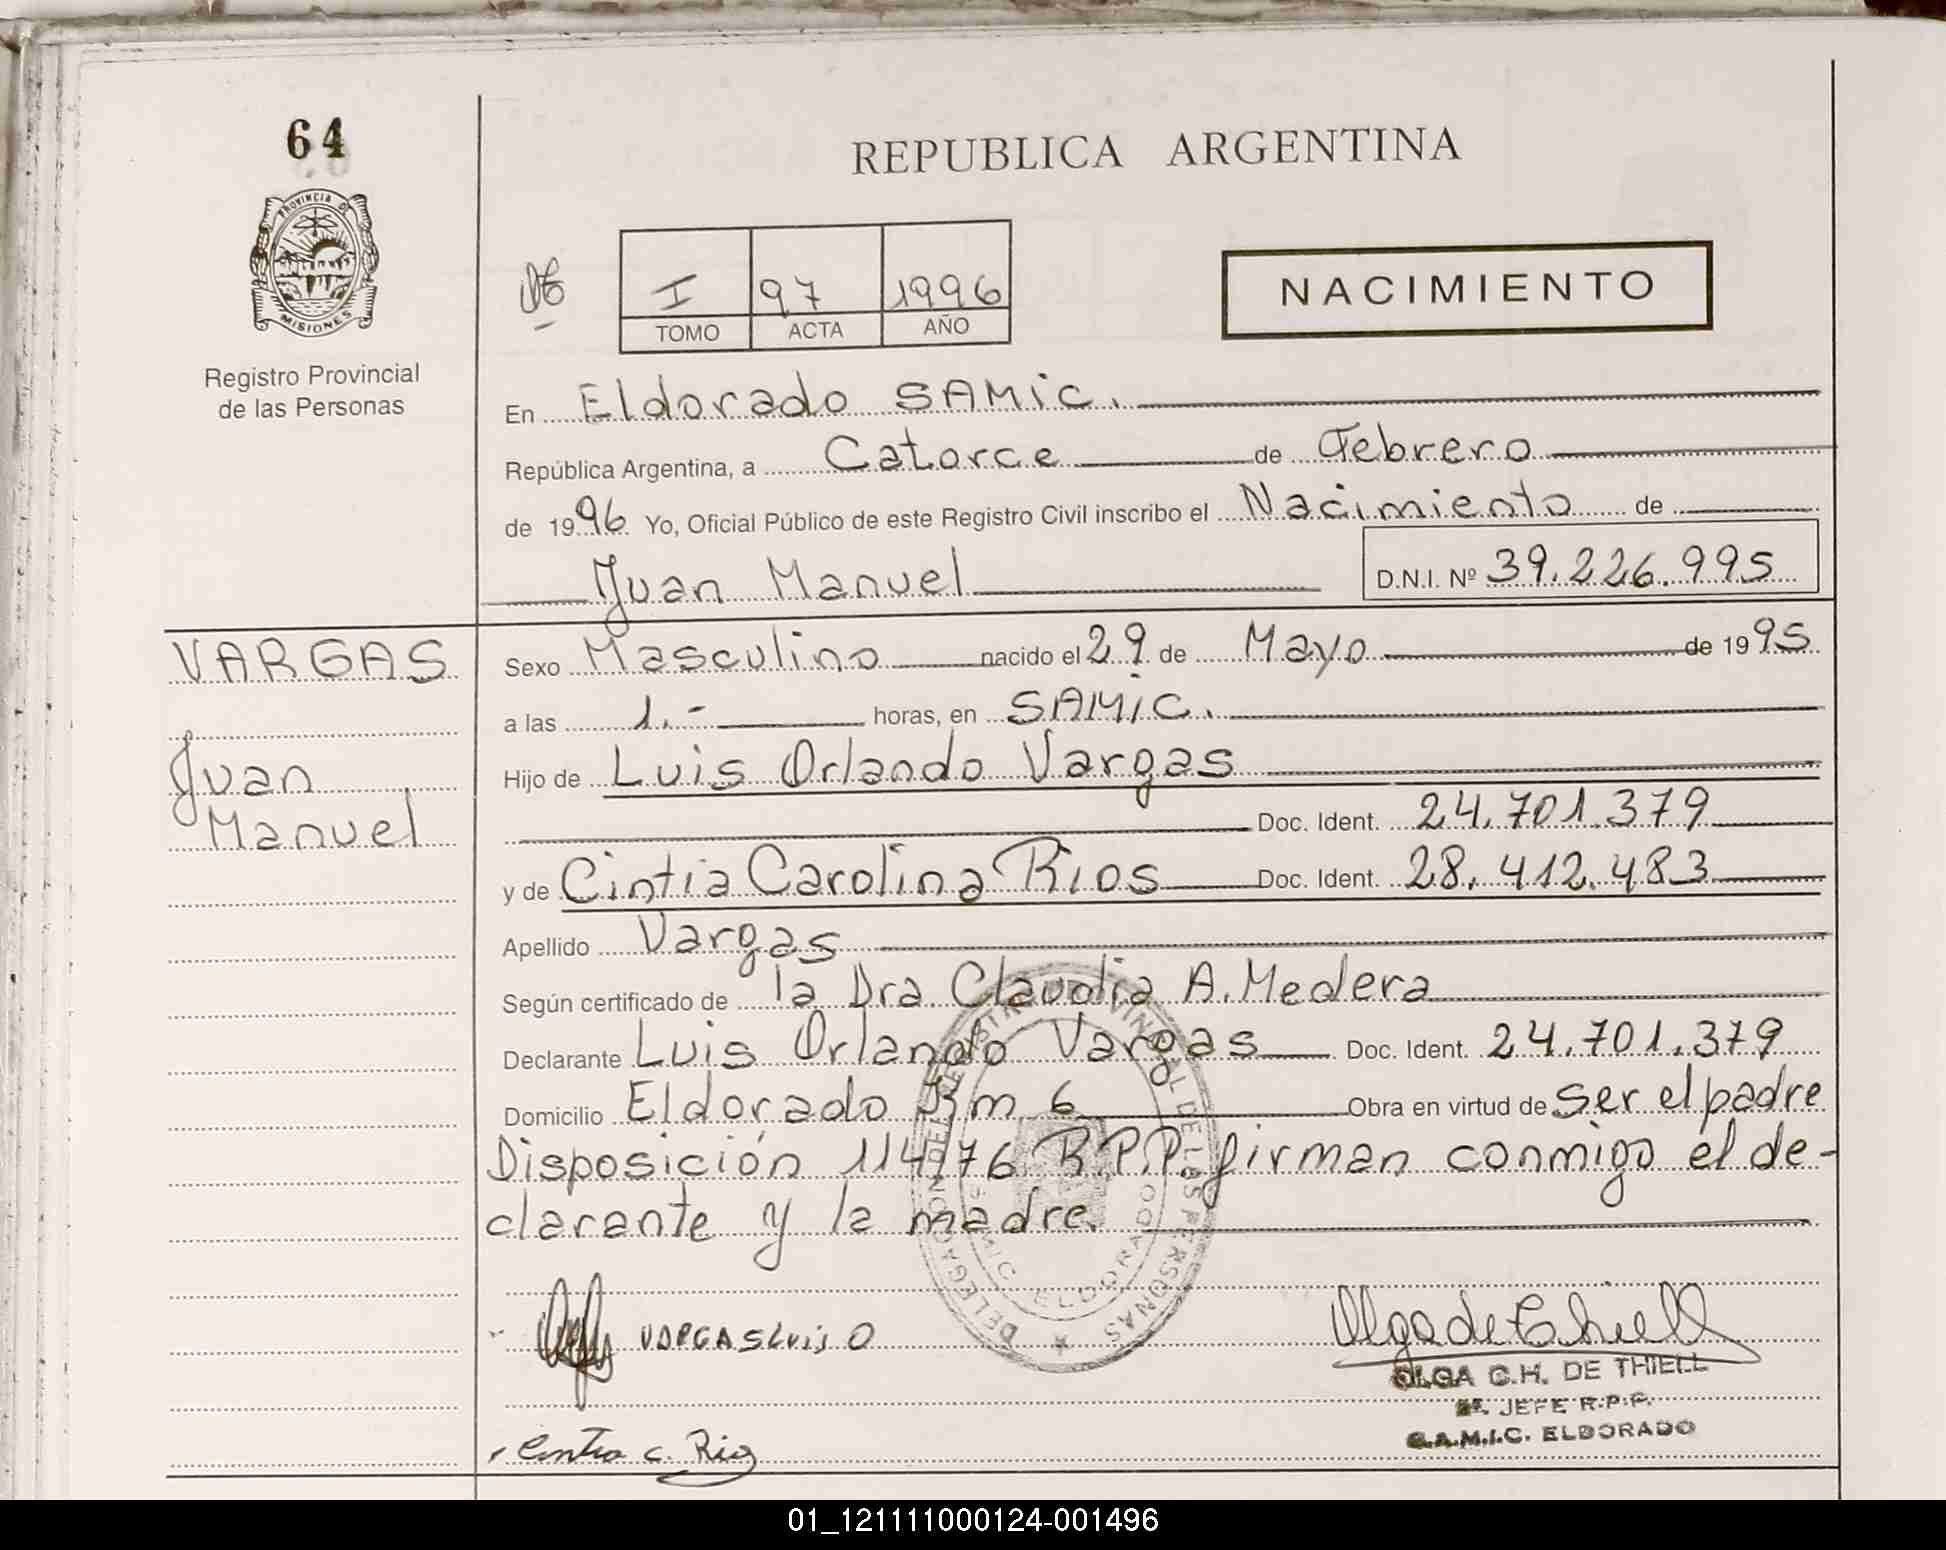 64
PROVINCIA DE
MISIONES
Registro Provincial
de las Personas
REPUBLICA ARGENTINA
I 97 1996
TOMO ACTA AÑO
NACIMIENTO
En Eldorado SAMIC.
República Argentina, a Catorce de Febrero
de 1996 Yo, Oficial Público de este Registro Civil inscribo el Nacimiento de
Juan Manuel D.N.I. Nº 39.226.995
VARGAS
Juan
Manuel
Sexo Masculino nacido el 29 de Mayo de 1995
a las 1.- horas, en SAMIC.
Hijo de Luis Orlando Vargas
Doc. Ident. 24.701.379
y de Cintia Carolina Rios Doc. Ident. 28.412.483
Apellido Vargas
Según certificado de la Dra Claudia A. Medera
Declarante Luis Orlando Vargas Doc. Ident. 24.701.379
Domicilio Eldorado Km 6 Obra en virtud de ser el padre
Disposición 114/76 R.P.P. firman conmigo el de-
clarante y la madre.
DELEGACION DEL REGISTRO PROVINCIAL DE LAS PERSONAS
SAMIC ELDORADO
VARGAS Luis O
Olga de Thiell
OLGA C.H. DE THIELL
JEFE R.P.P.
S.A.M.I.C. ELDORADO
Cintia C. Rios
01_121111000124-001496